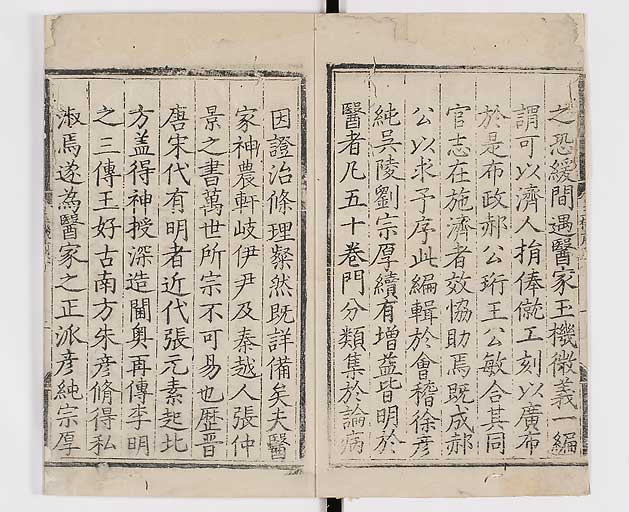 之恐緩間遇醫家玉機微義一編
謂可以濟人捐俸僦工刻以廣布
於是布政郝公珩王公敏合其同
官志在施濟者效協助焉既成郝
公以求予序此編輯於會稽徐彦
純吳陵劉宗厚續有增益皆明於
醫者凡五十卷門分類集於論病
因證治條理粲然既詳備矣夫醫
家神農軒岐伊尹及秦越人張仲
景之書萬世所宗不可易也歴晋
唐宋代有明者近代張元素起北
方盖得神授深造閫奥再傳李明
之三傳王好古南方朱彦脩得私
淑焉遂為醫家之正派彦純宗厚